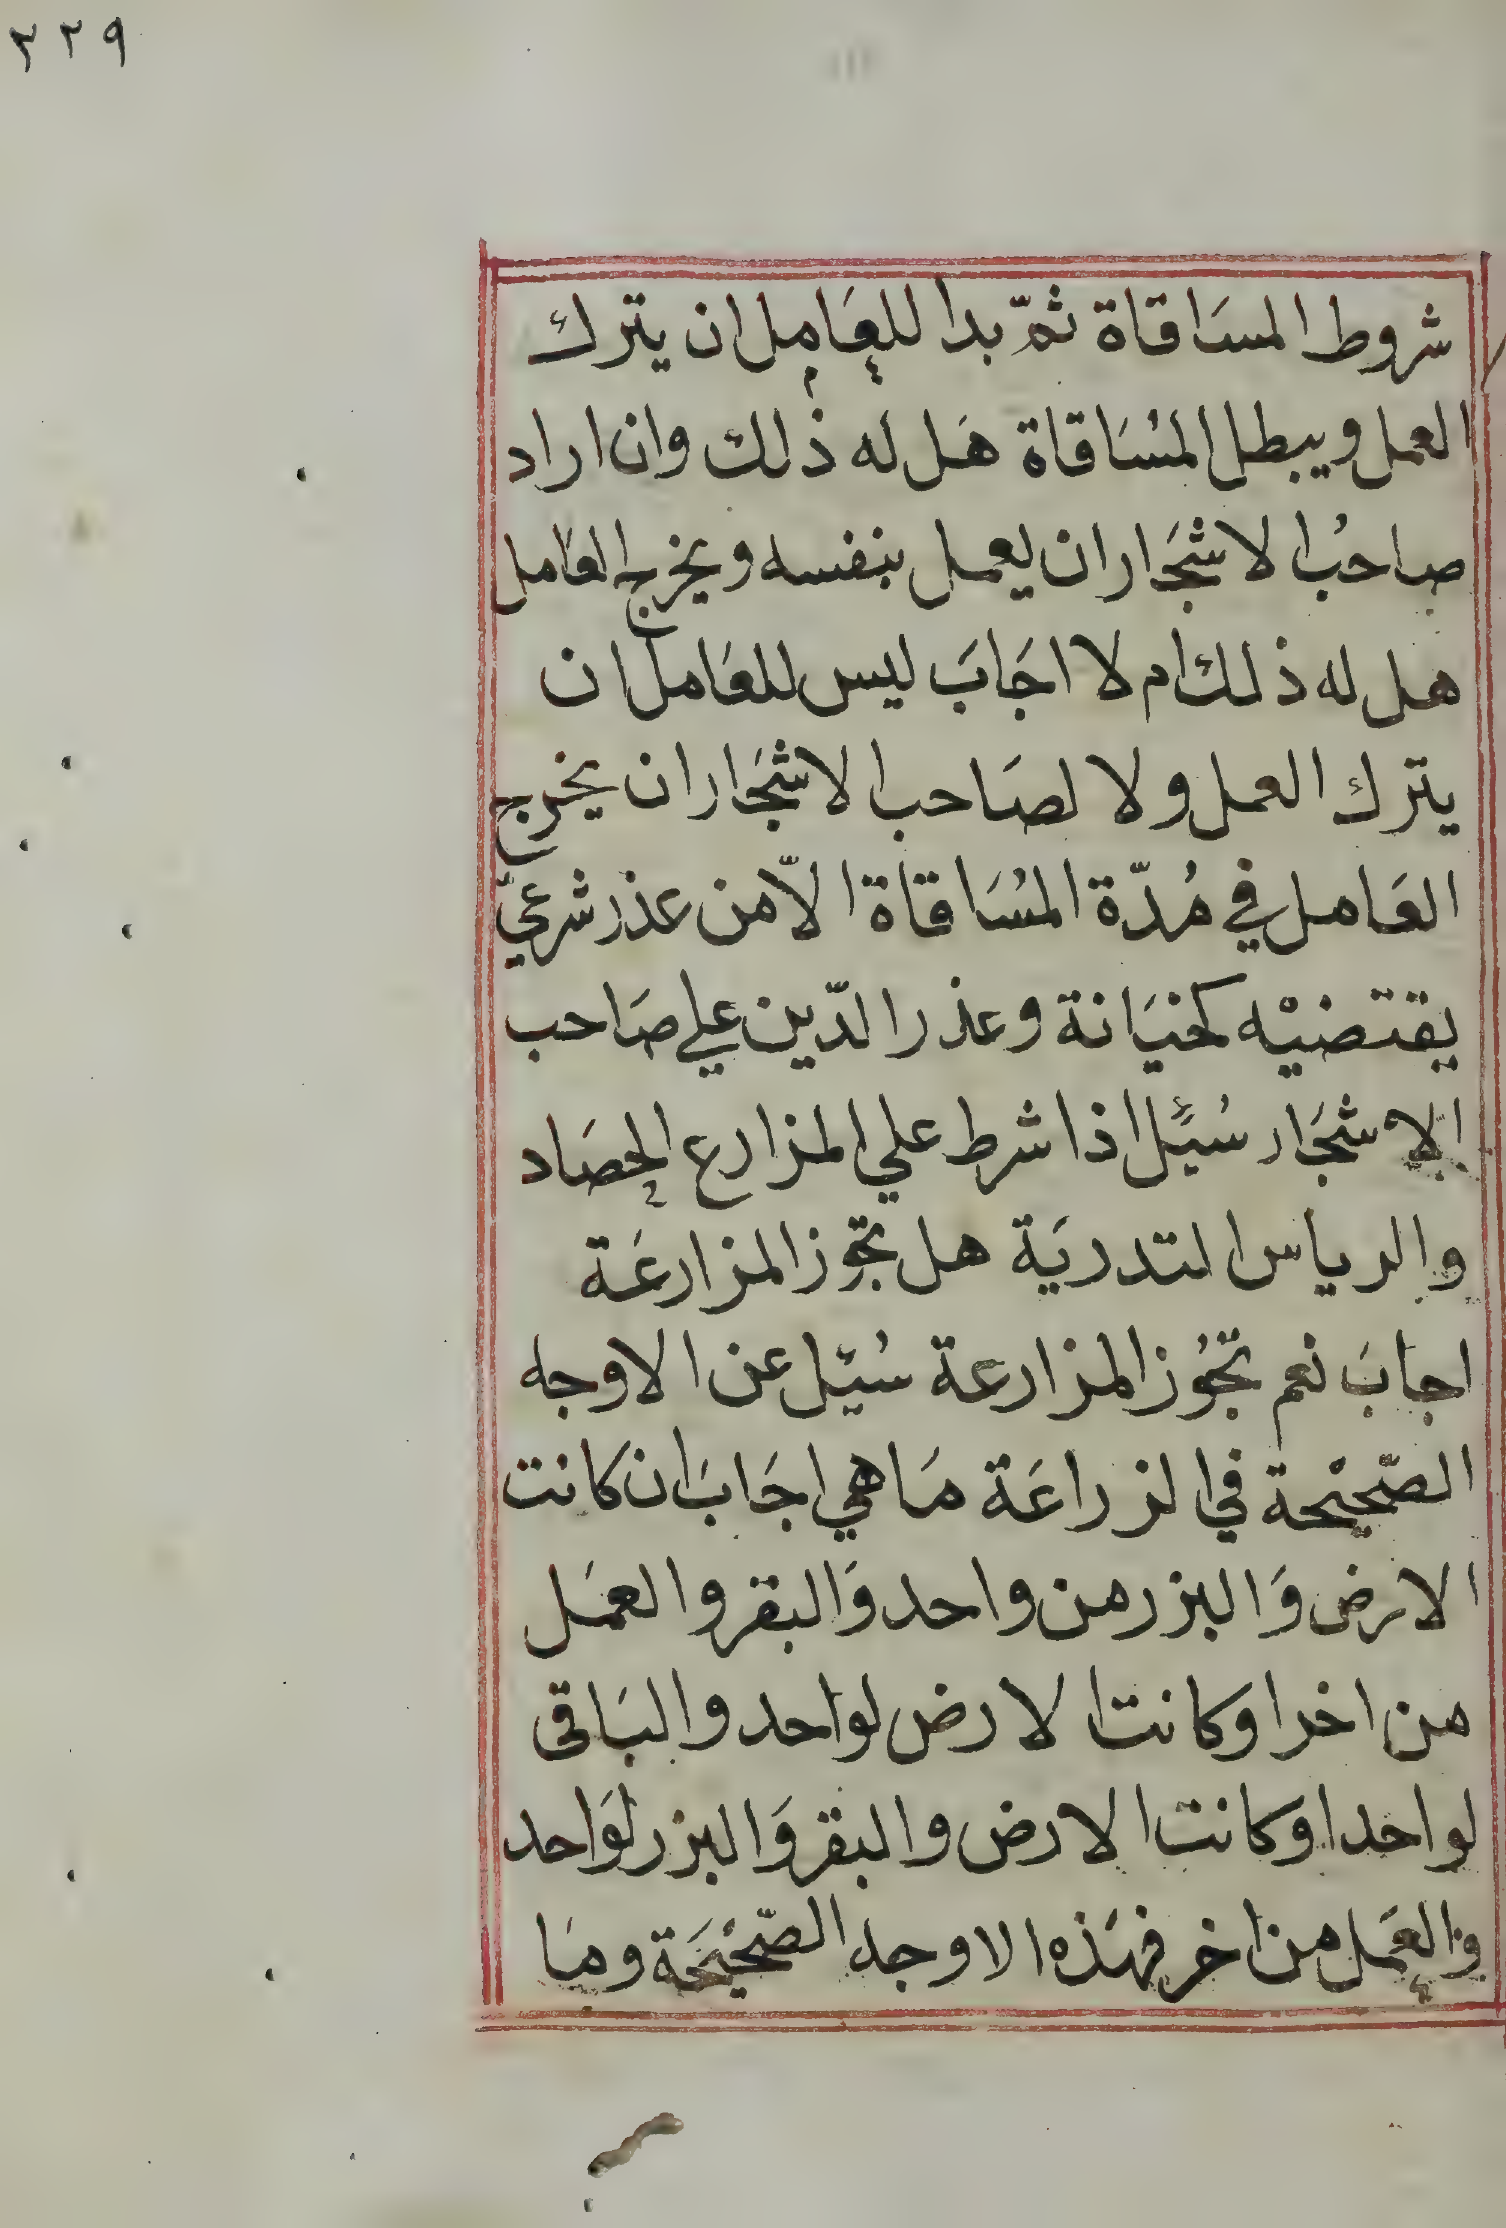 ٢٢٩
شروط المسَاقاة ثمّ بدا للعَامل ان يترك
العمل ويبطل المسُاقاة هَل له ذلك وان اراد
صاحبُ الاشجَار ان يعمل بنفسه ويخرج العَامل
هل له ذلك ام لا اجَابَ ليس للعَامل ان
يترك العمل ولا لصَاحب الاشجَار ان يخرج
العَامل في مُدّة المسُاقاة الاّ من عذر شرعيّ
يقتضيْه كخيَانة وعذر الدّين علي صَاحب
الاشجَار سُئل اذا شرط علي المزارع الحصَاد
والدياس التدريَة هل تجوز المزارعَة
اجابَ نعم تجُوز المزارعة سُئل عن الاوجه
الصّحيْحة في الزراعَة مَا هي اجَابَ ان كانت
الارض وَالبزر من واحد وَالبقر والعمَل
من اخر او كانت الارض لواحد والبَاقى
لواحد او كانت الارض والبقر وَالبزر لوَاحد
والعَمل من اخر فهَذه الاوجه الصّحيْحَة ومَا